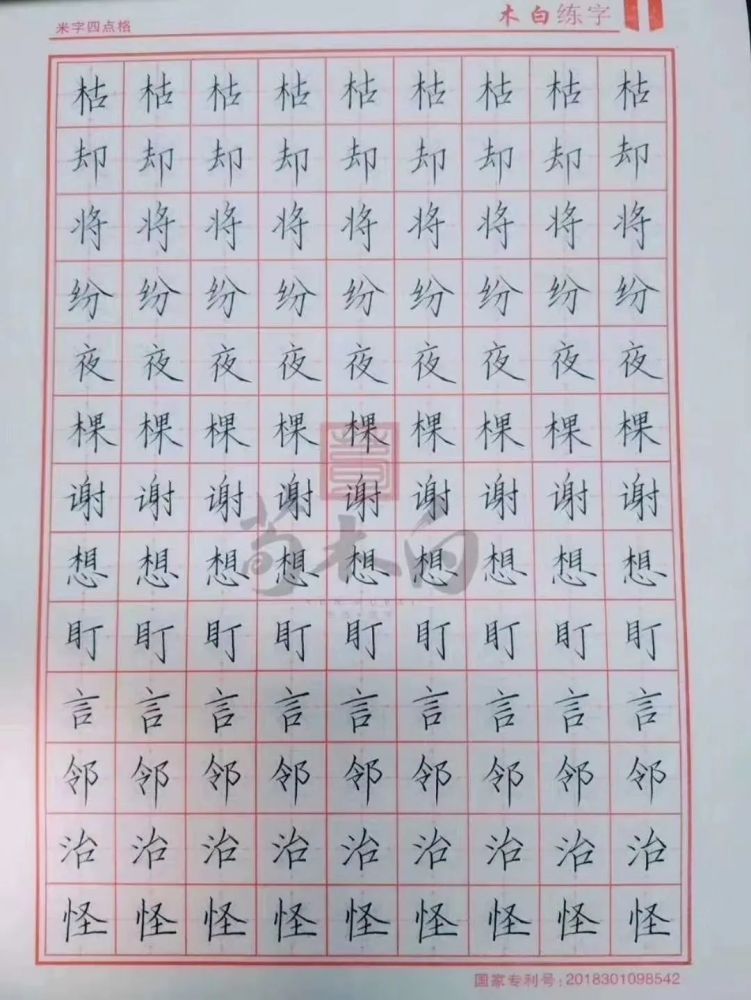 米字四点格 木白练字
枯枯枯枯枯枯枯枯枯
却却却却却却却却却
将将将将将将将将将
纷纷纷纷纷纷纷纷纷
夜夜夜夜夜夜夜夜夜
棵棵棵棵棵棵棵棵棵
谢谢谢谢谢谢谢谢谢
想想想想想想想想想
盯盯盯盯盯盯盯盯盯
言言言言言言言言言
邻邻邻邻邻邻邻邻邻
治治治治治治治治治
怪怪怪怪怪怪怪怪怪
国家专利号:2018301098542